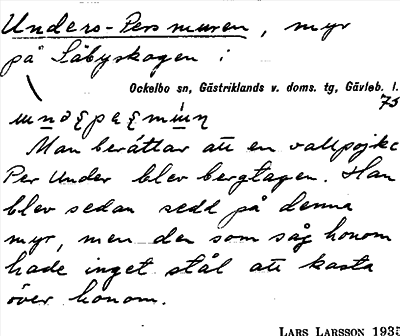 Unders-Pers muren, myr
på Säbyskogen i
Ockelbo sn, Gästriklands v. doms. tg, Gävleb. l.
75
Man berättar att en vallpojke
Per Under blev bergtagen. Han
blev sedan sedd på denna
myr, men den som såg honom
hade inget stål att kasta
över honom.
LARS LARSSON 1935